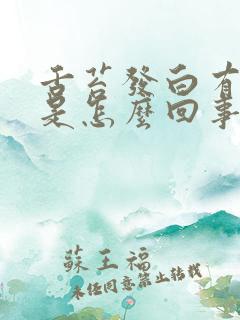 舌苔發白有
是怎麼回事
蘇王福
未經同意禁止轉載